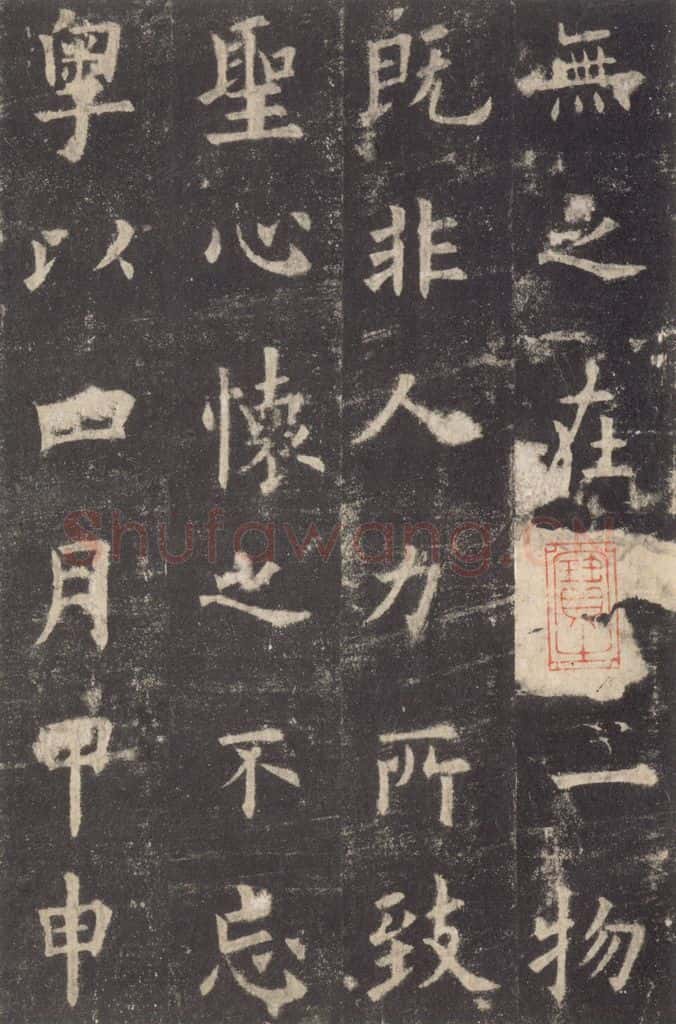 無之在一物
既非人力所致
聖心懷之不忘
粵以四月甲申
Shufawang.CN